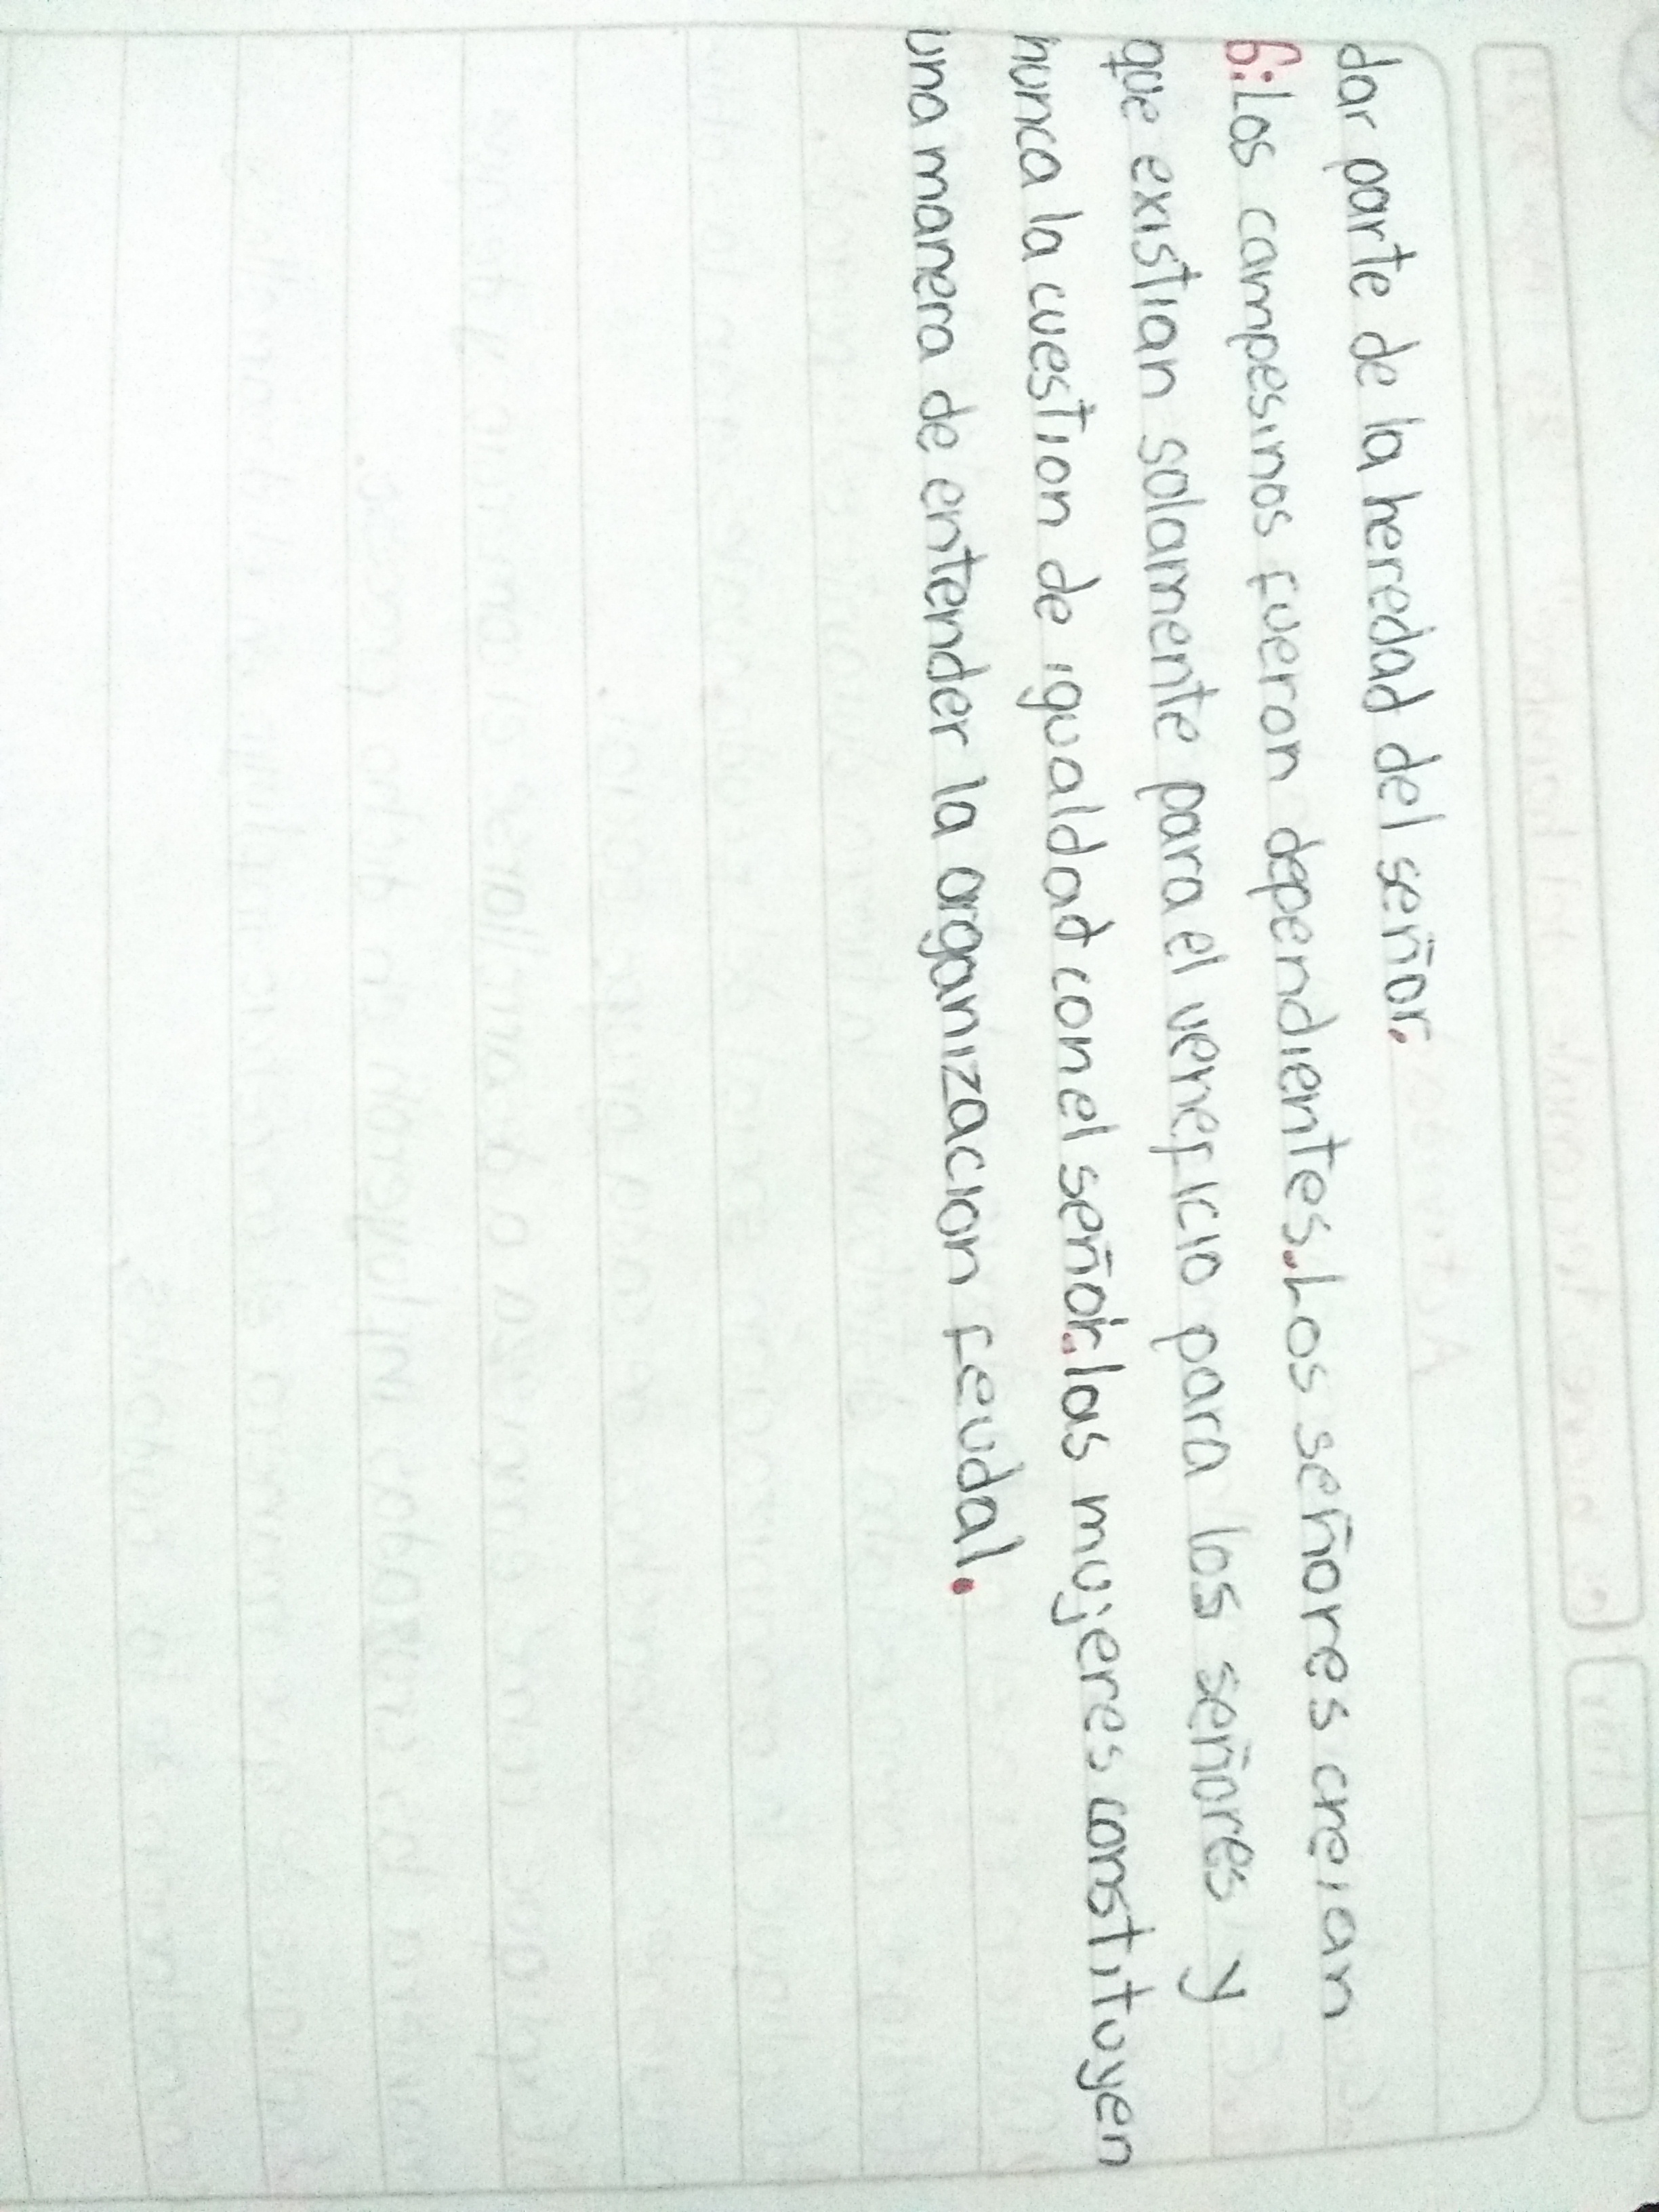 dar parte de la heredad del señor.
6:Los campesinos fueron dependientes.Los señores creian
que existian solamente para el veneficio para los señores y
nunca la cuestion de igualdad con el señor.las mujeres constituyen
una manera de entender la organizacion feudal.